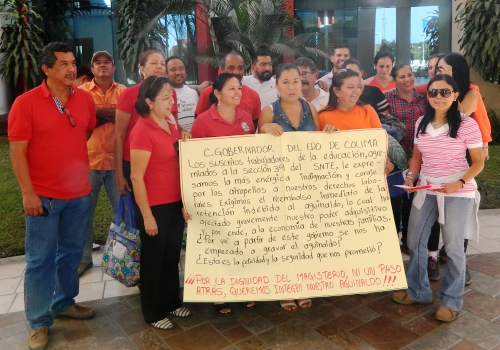 C. GOBERNADOR DEL EDO DE COLIMA
LOS SUSCRITOS TRABAJADORES DE LA EDUCACIÓN, AGRE
MIADOS A LA SECCIÓN 39 DEL SNTE, LE EXPRE-
SAMOS LA MÁS ENÉRGICA INDIGNACIÓN Y CORAJE
POR LOS ATROPELLOS A NUESTROS DERECHOS LABO-
RALES. EXIGIMOS EL REEMBOLSO INMEDIATO DE LA
RETENCIÓN INDEBIDA AL AGUINALDO, LO CUAL HA
AFECTADO GRAVEMENTE NUESTRO PODER ADQUISITIVO
Y, POR ENDE, A LA ECONOMÍA DE NUESTRAS FAMILIAS.
¿POR QUÉ A PARTIR DE ESTE GOBIERNO SE NOS HA
EMPEZADO A GRAVAR EL AGUINALDO?
¿ESTA ES LA Y LA SEGURIDAD QUE NOS PROMETIÓ?
¡¡¡POR LA DIGNIDAD DEL MAGISTERIO, NI UN PASO
ATRAS, QUEREMOS INTEGRO NUESTRO AGUINALDO!!!